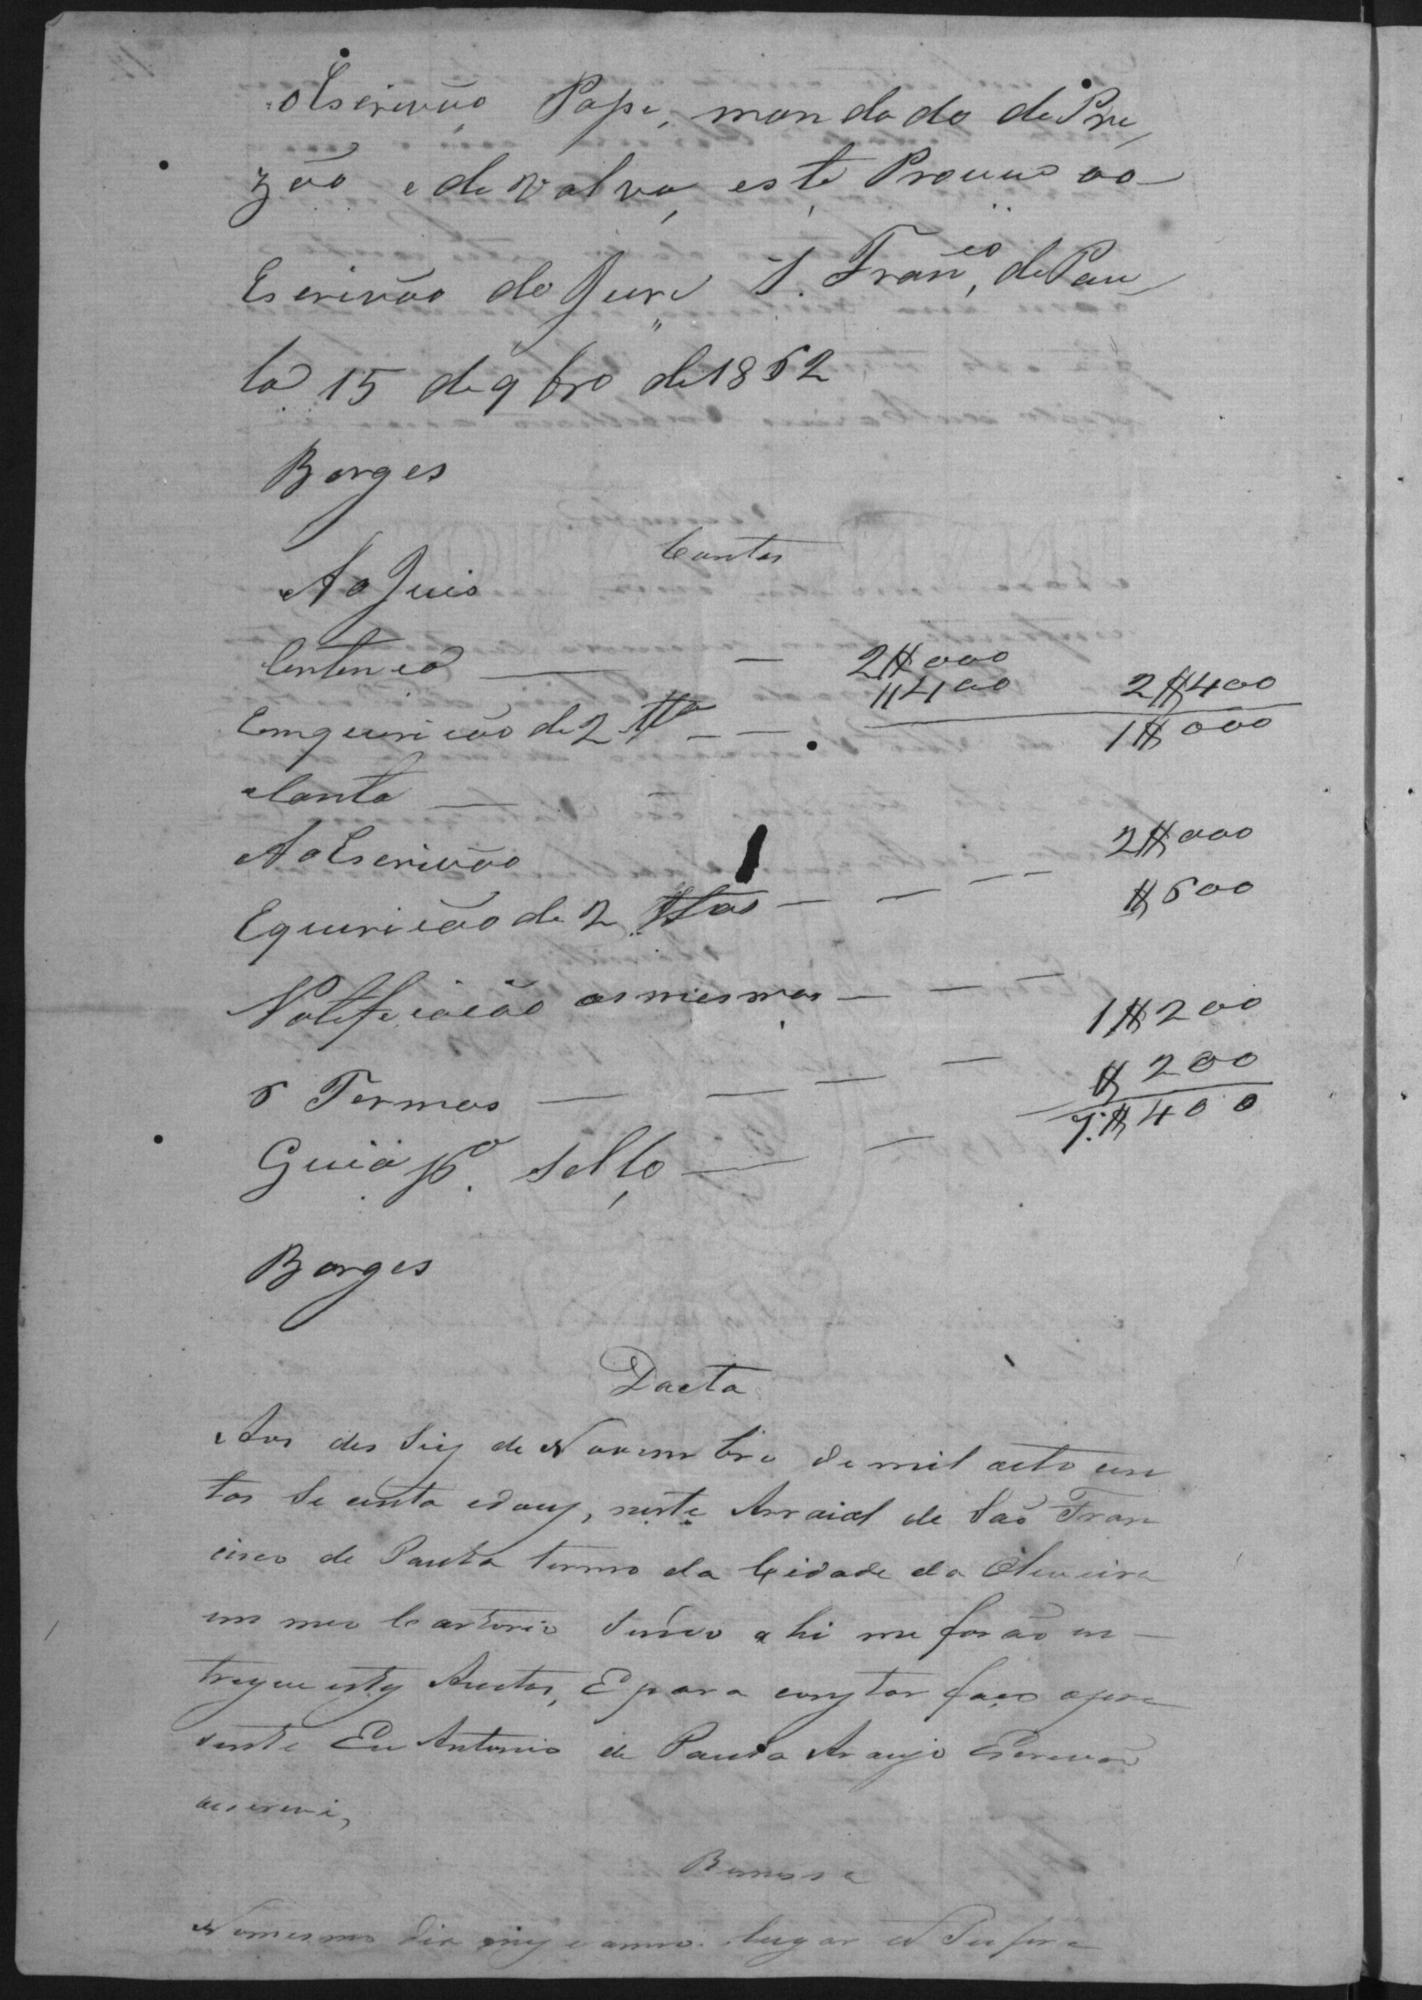 oEscrivão Pase, mandado de Pri
zão e devolva este Proceso ao
Escrivão do Jure S. Franco, de Pau
la 15 de 9bro de 1862
Borges
Contas
Ao Juis
Centencа — — 2$000
Emquirição de 2 ttas — — $400 2$400
Conta — — 1$000
Ao Escrivão
Equirição de 2 ttas — — — — 2$000
Notificacão as mesmas — — — $600
6 Termos — — — — 1$200
Guia pa. sello — — $200
7.$400
Borges
Dacta
Aos des seis de Novembro de mil oito cen
tos secenta e dous, neste Arraial de São Fran
cisco de Paula termo da Cidade da Oliveira
em meo Cartorio sendo ahi me forão en-
tregue estes Auctos, E para constar faço opre
sente Eu Antonio de Paula Araujo Escrivão
oescrevi,
Remessa
Nomesmo dia mes e anno lugar